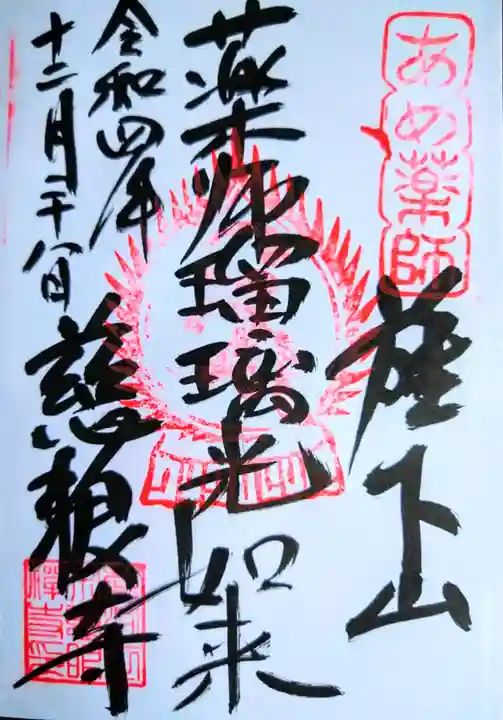 あめ薬師
下山
薬師瑠璃光如来
令和四年
十二月二十八日
慈願寺